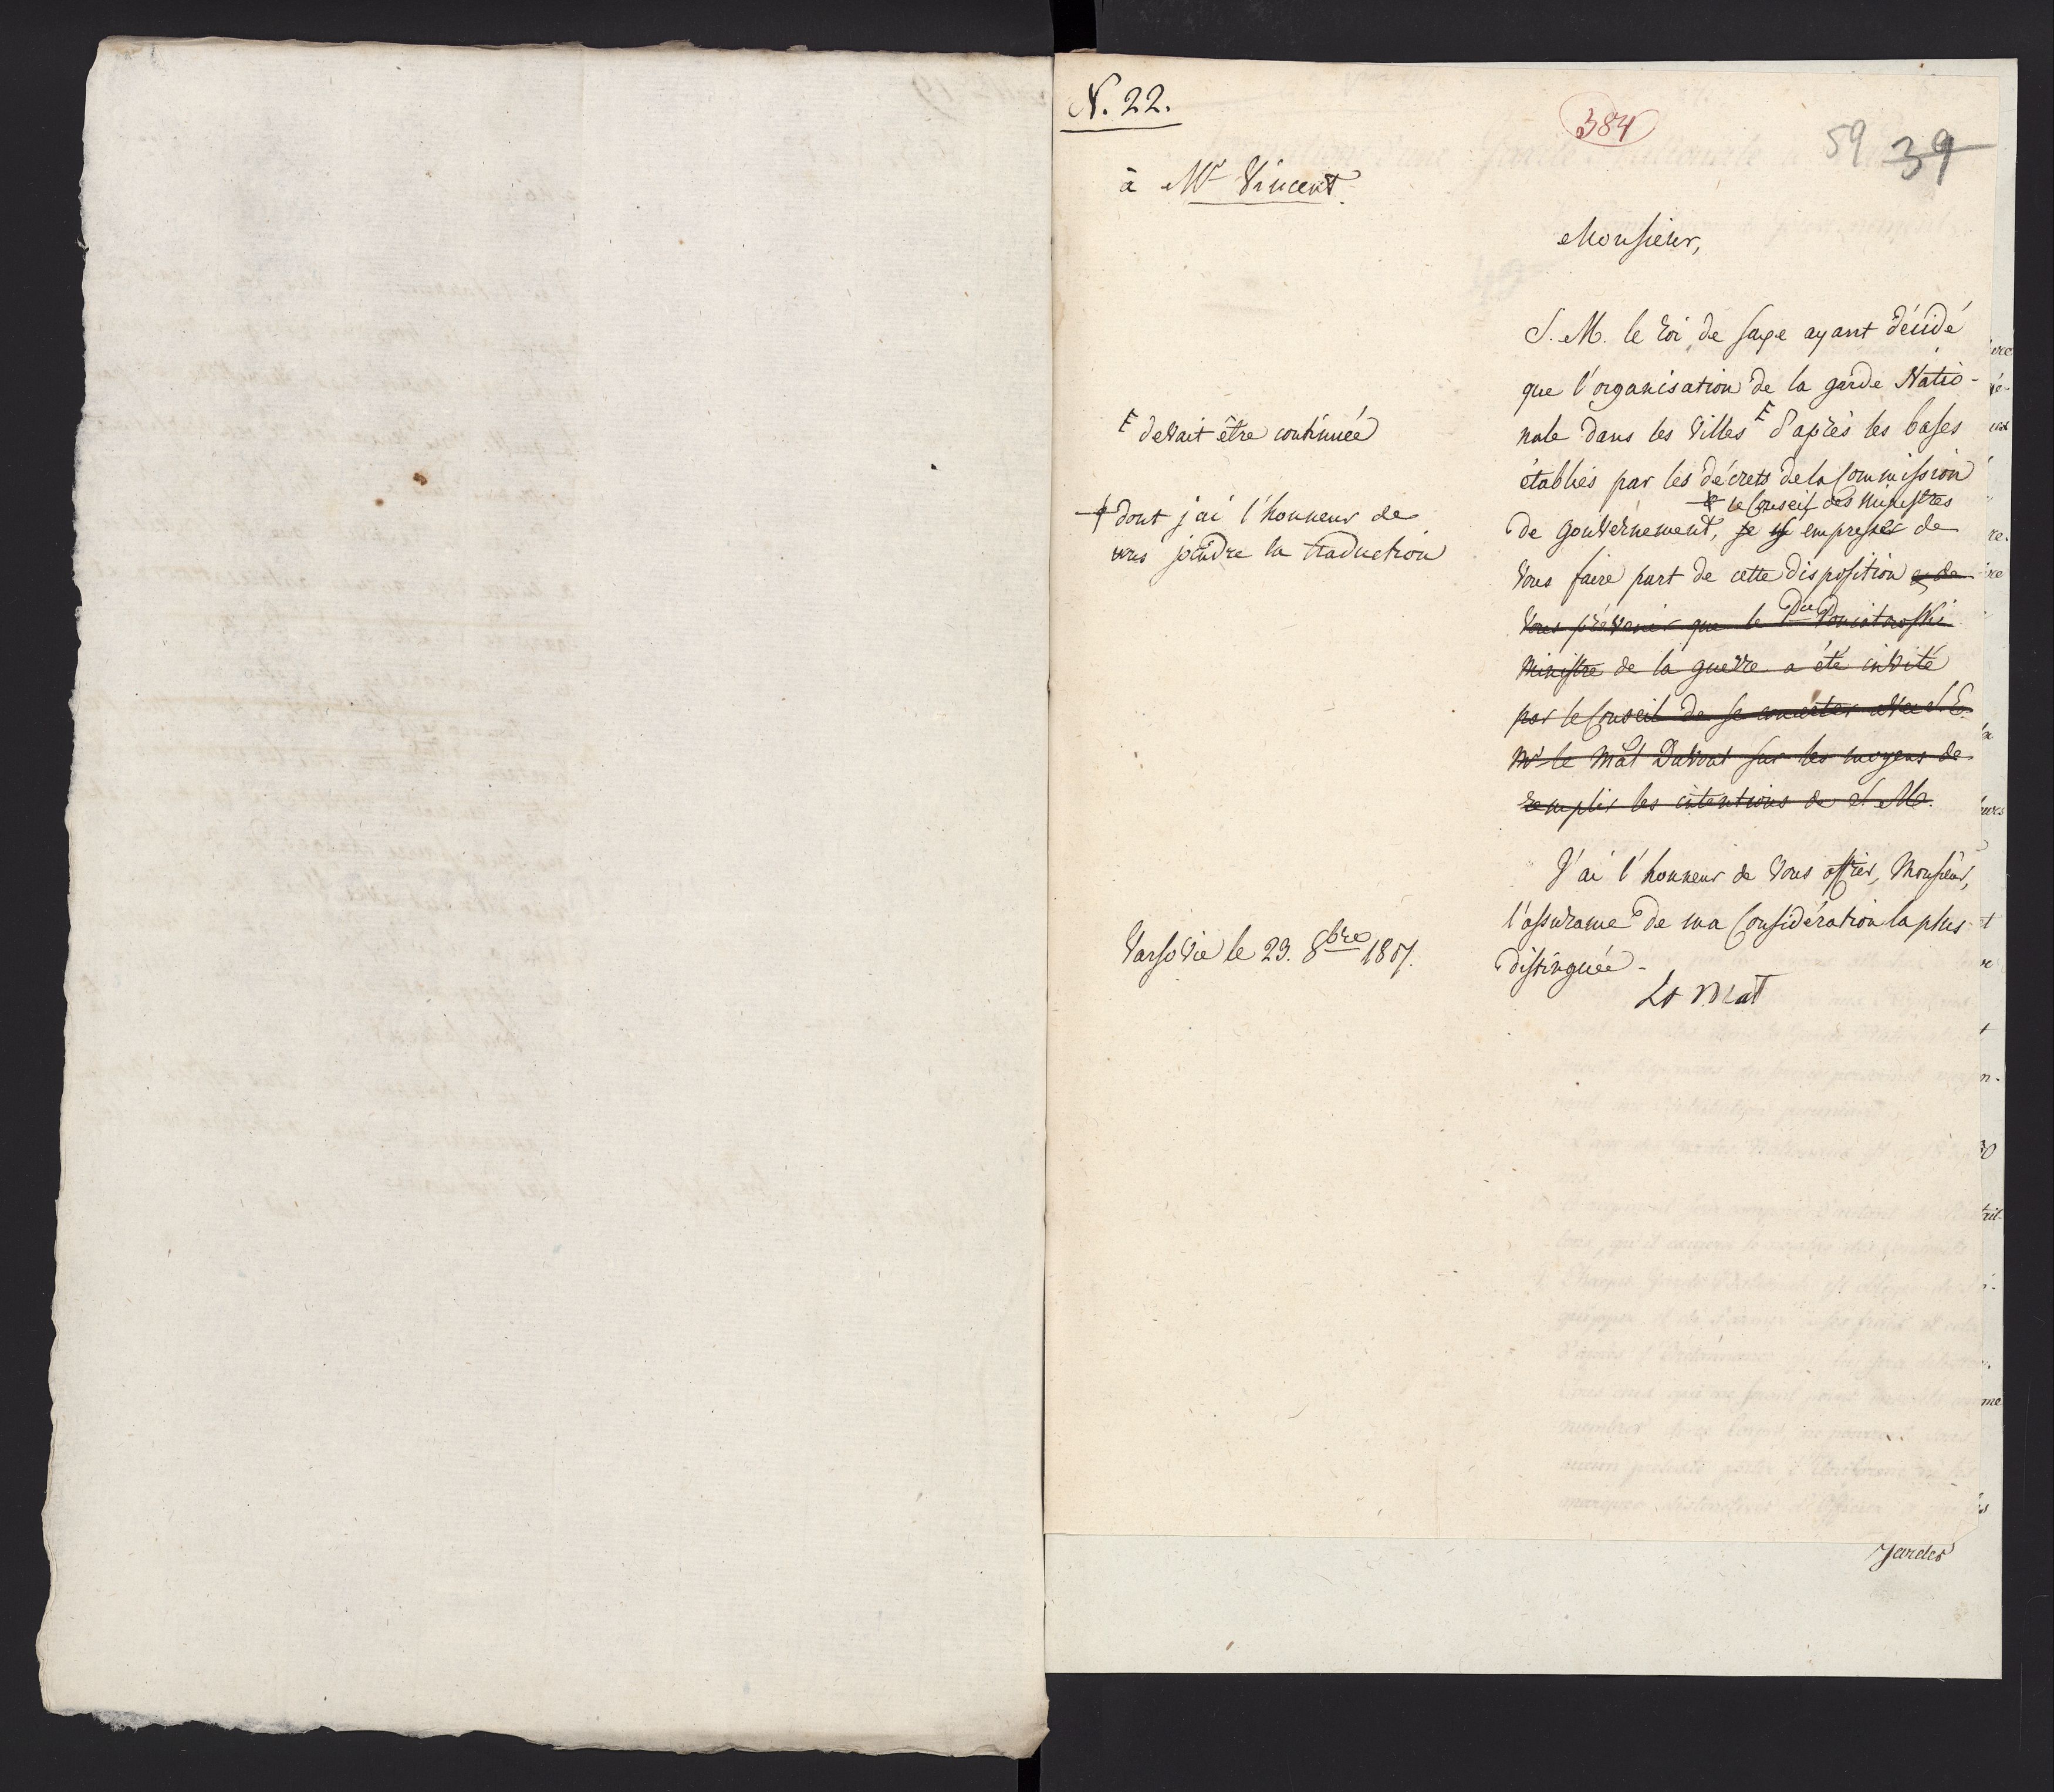 N. 22.
384
59 39
à Mr Vincent.
Monsieur,
S. M. le Roi de Saxe ayant décidé
que l'organisation de la garde Natio-
nale dans les Villes F d'après les bases
F devait être continuée
établies par les décrets de la Commission
ǂ le Conseil des Ministres
de Gouvernement, je m'empresse de
ǂ dont j'ai l'honneur de
vous joindre la traduction
Vous faire part de cette disposition et de
Vous prévenir que le Pce Poniatowski
Ministre de la guerre a été invité
par le Conseil de se concerter avec S. E.
Mr le Mal Davout sur les moyens de
remplir les intentions de S. M.
J'ai l'honneur de Vous offrir, Monsieur,
l'assurance de ma Considération la plus
distinguée.
Varsovie le 23. 8bre 1807.
Ls Mał
Gardes